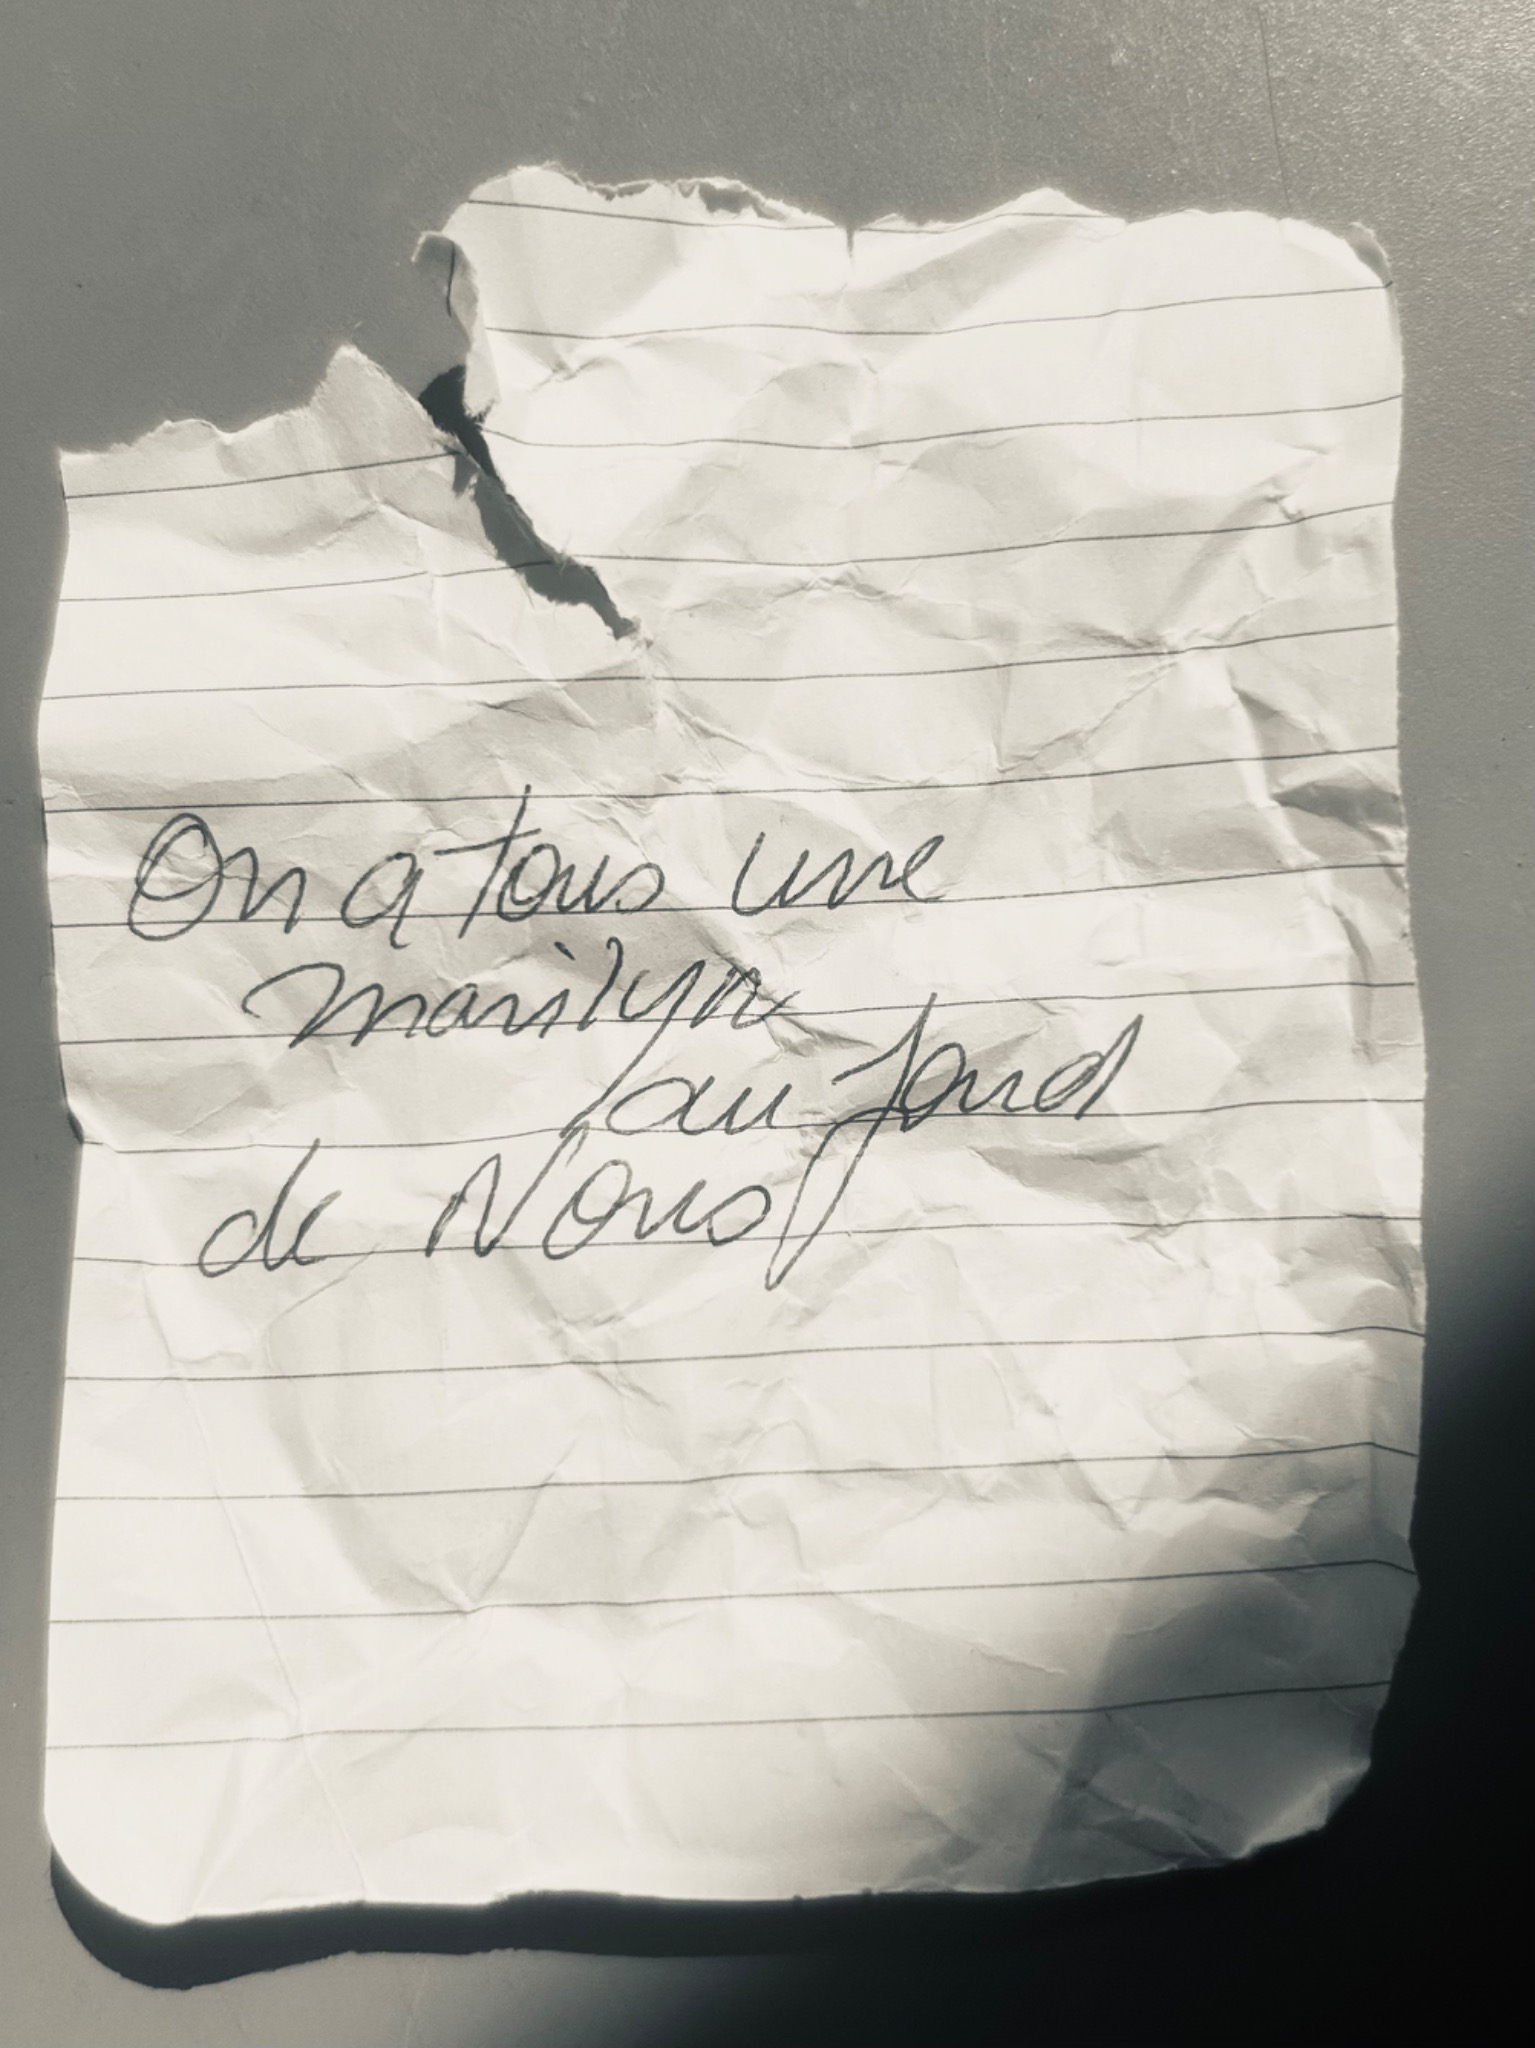 On a tous une
marilyn
au fond
de Nous